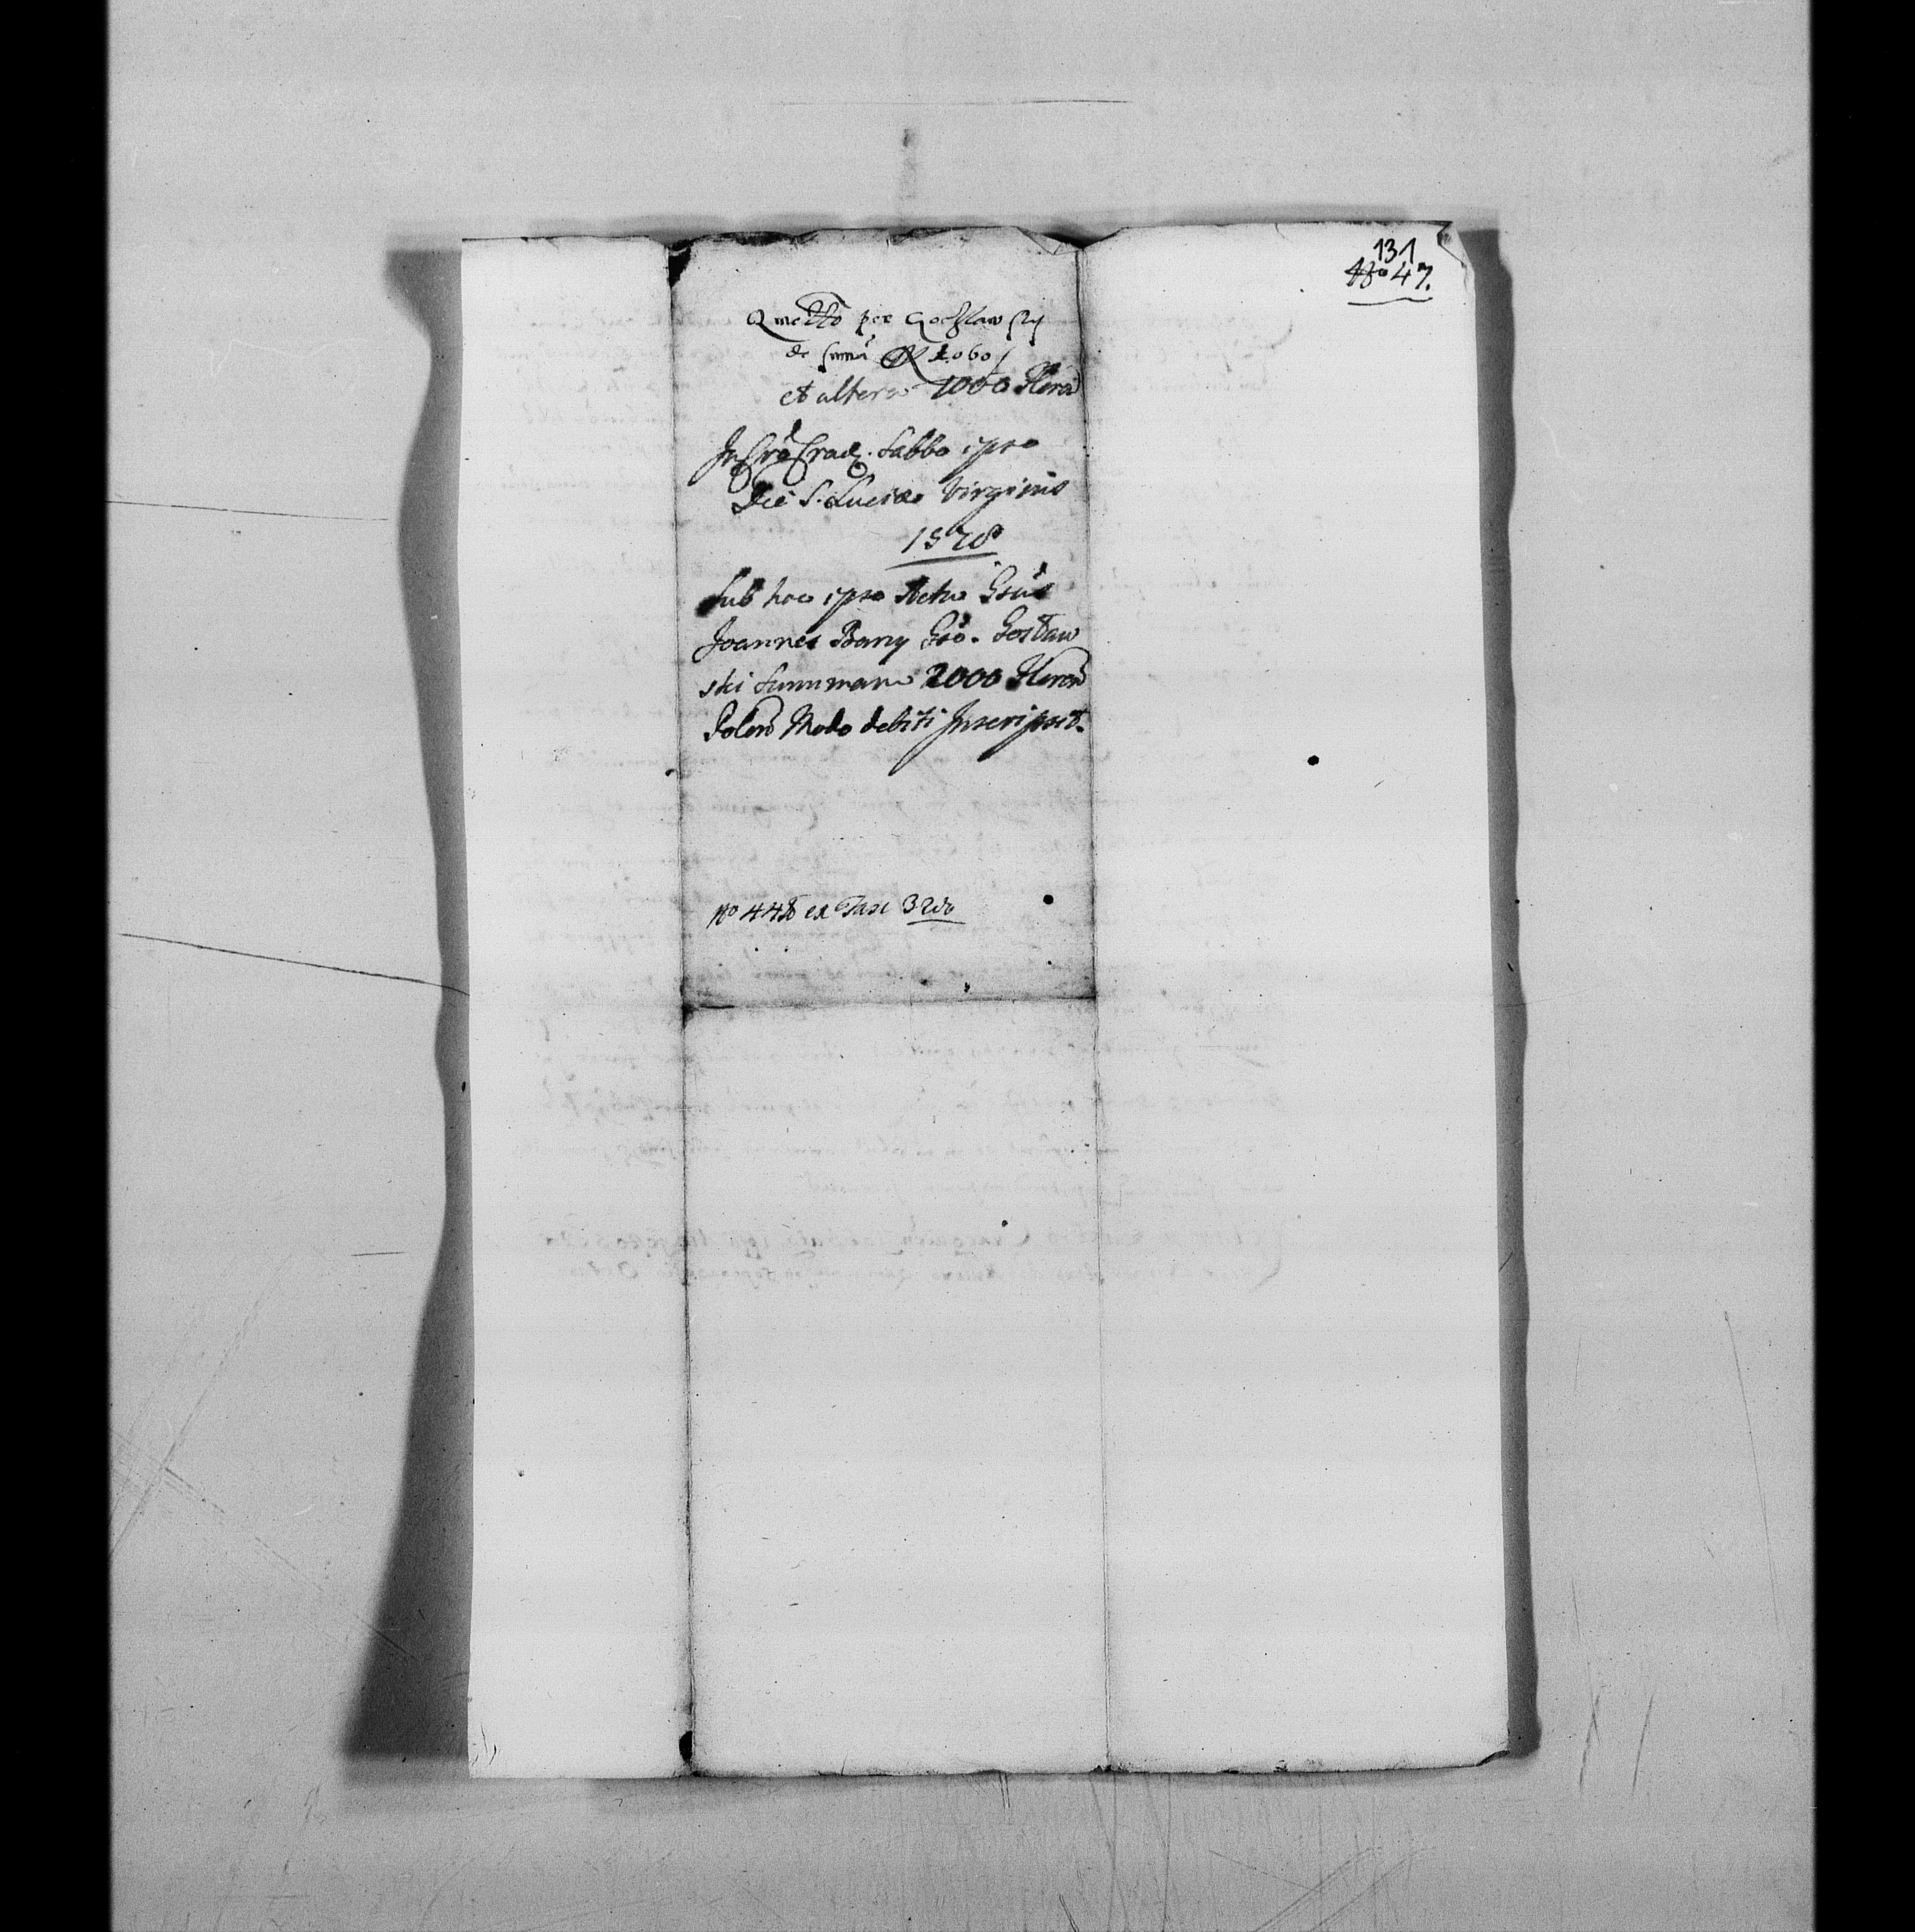 131
No 47.
Quietto per Goczlawsky
de suma 1060
et altera 1000 Floren
In Cro Crac. Sabbo ipso
Die S. Luciæ Virginis
1578
Sub hoc ipso Actu Gsus
Joannes Bany Gso. Gostaw
ski Summam 2000 Floren
Polon Modo debiti Inscripsit.
No 44 ex Fasc 32do